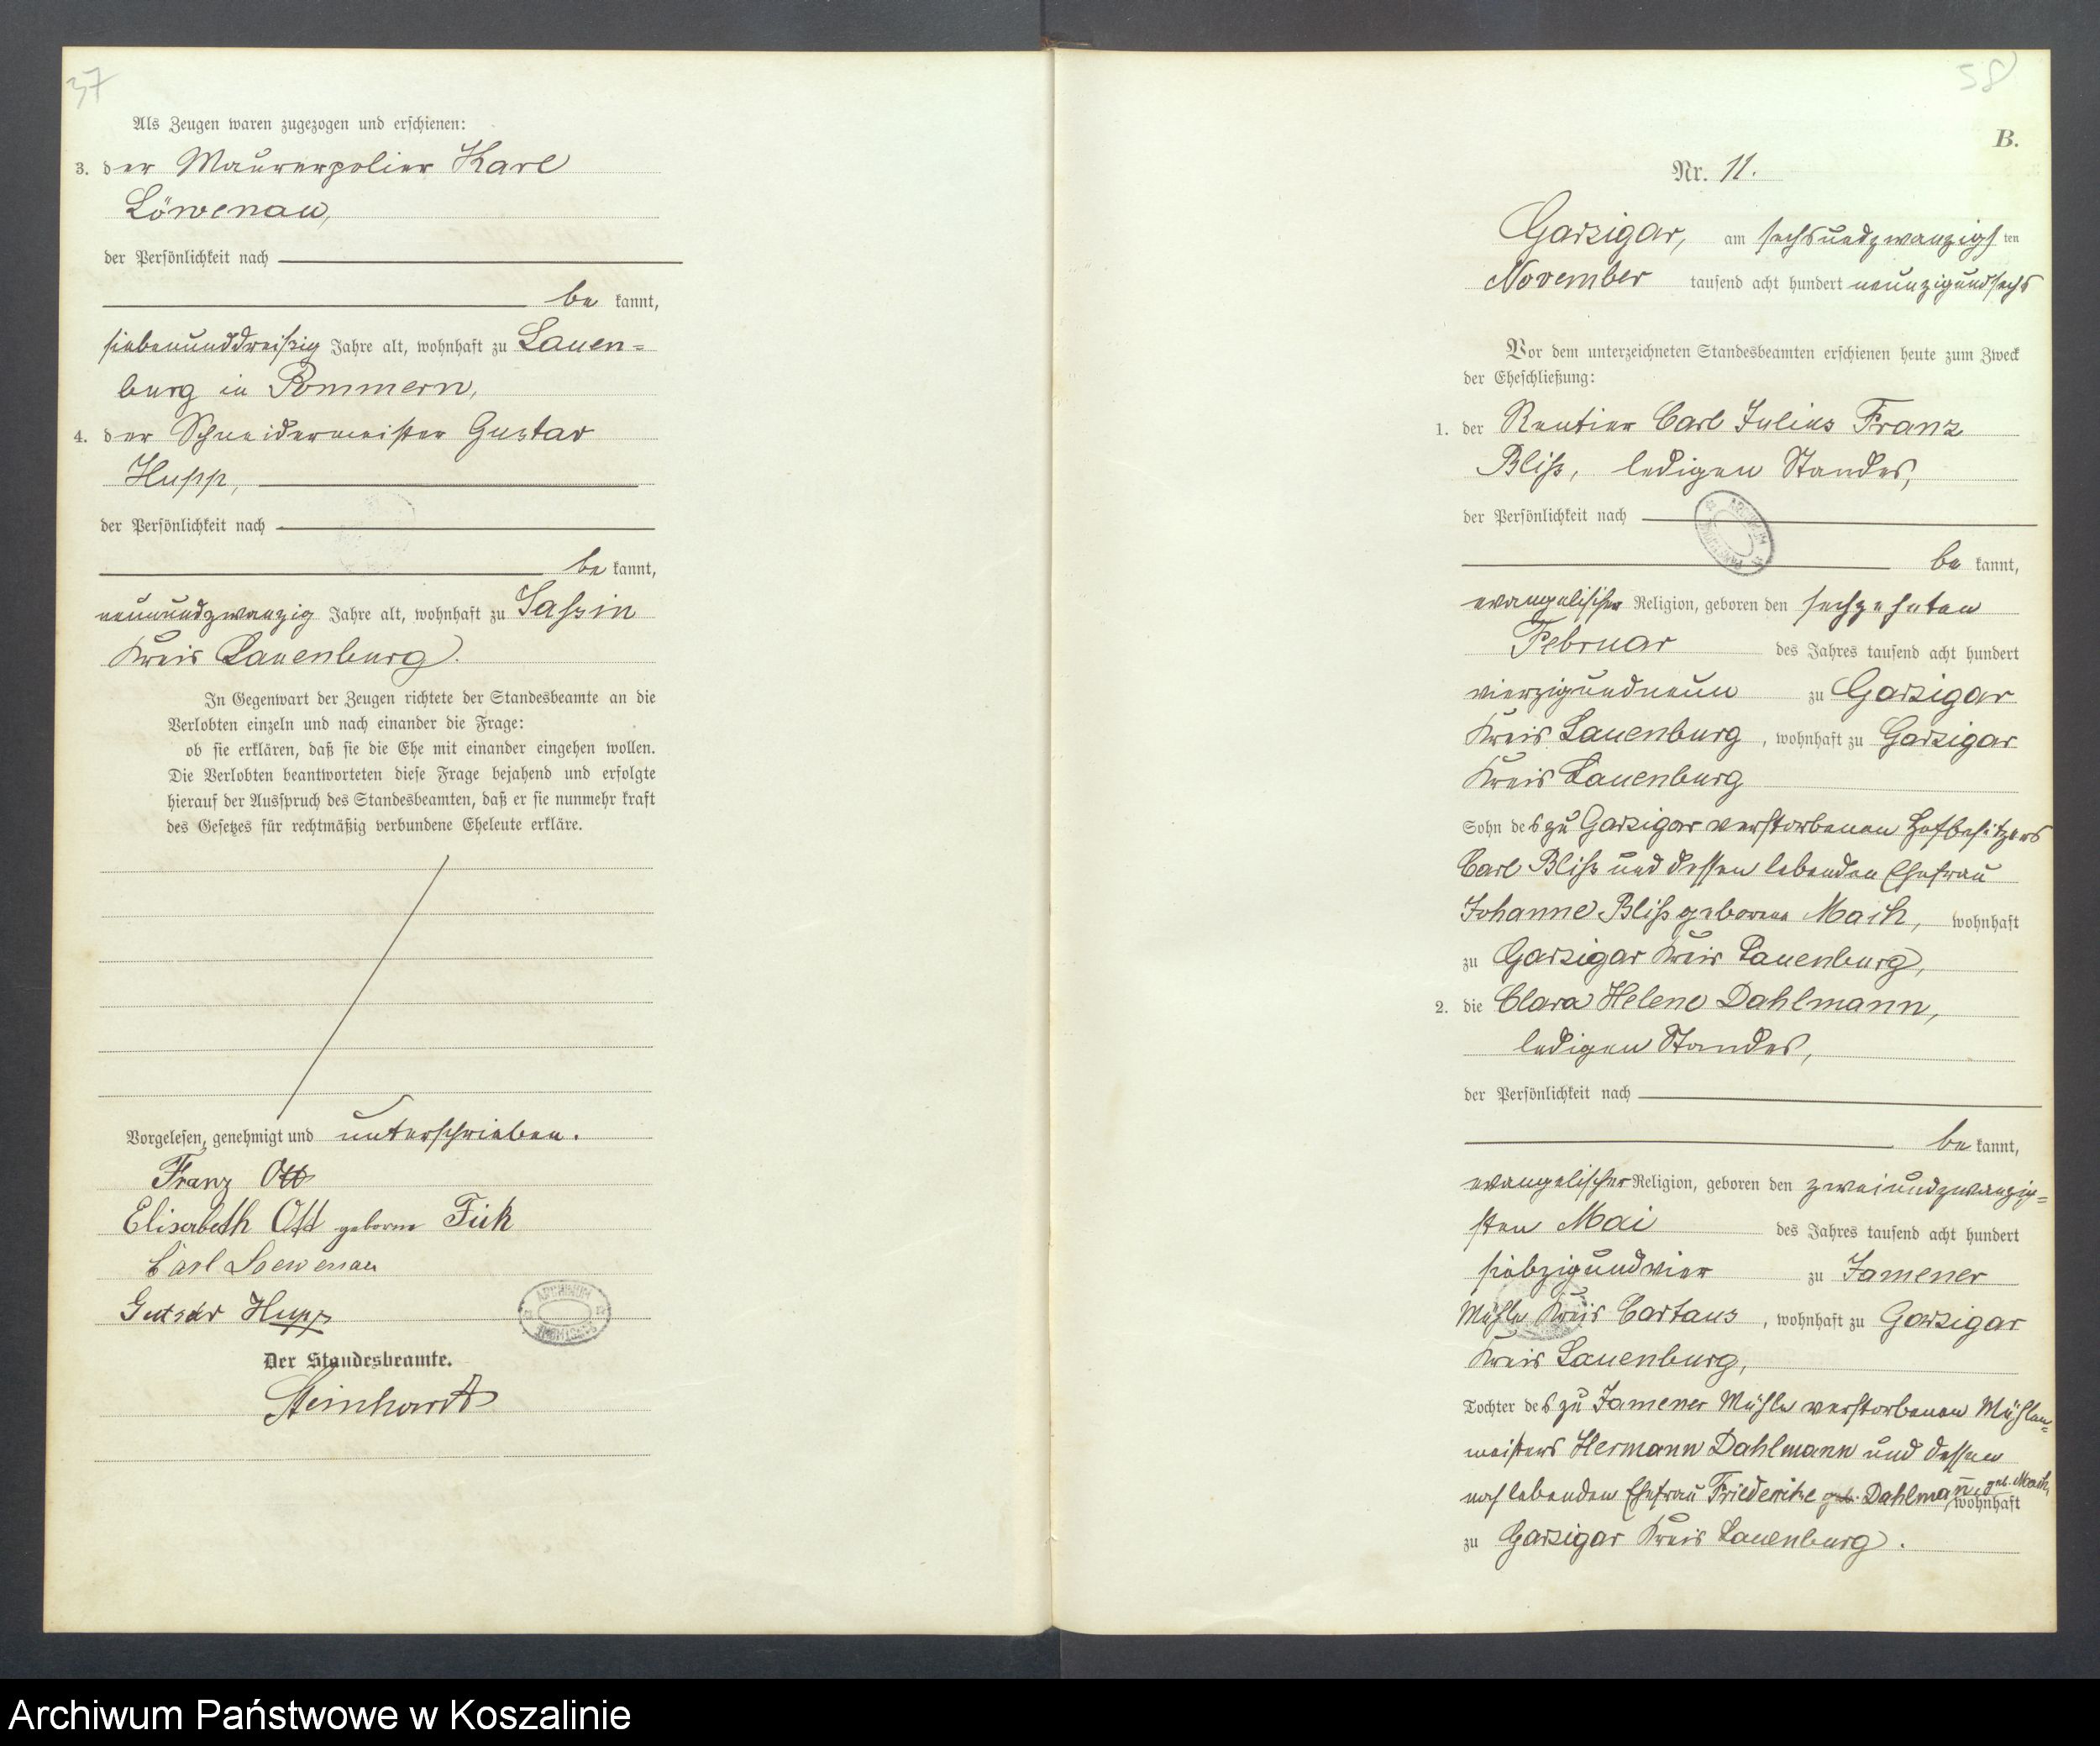 37
Als Zeugen waren zugezogen und erschienen:
3. der Maurerpolier Karl
Löwenau,
der Persönlichkeit nach
be kannt,
siebenunddreißig Jahre alt, wohnhaft zu Lauen=
burg in Pommern,
4. der Schneidermeister Gustav
Hupp,
der Persönlichkeit nach
be kannt,
neunundzwanzig Jahre alt, wohnhaft zu Sassin
Kreis Lauenburg.
In Gegenwart der Zeugen richtete der Standesbeamte an die
Verlobten einzeln und nach einander die Frage:
ob sie erklären, daß sie die Ehe mit einander eingehen wollen.
Die Verlobten beantworteten diese Frage bejahend und erfolgte
hierauf der Ausspruch des Standesbeamten, daß er sie nunmehr kraft
des Gesetzes für rechtmäßig verbundene Eheleute erkläre.
Vorgelesen, genehmigt und unterschrieben.
Franz Ott
Elisabeth Ott geborne Fick
Carl Loewenau
Gustav Hupp
Der Standesbeamte.
Steinhardt
58
B.
Nr. 11.
Garzigar, am sechsundzwanzigs ten
November tausend acht hundert neunzigundsechs
Vor dem unterzeichneten Standesbeamten erschienen heute zum Zweck
der Eheschließung:
1. der Rentier Carl Julius Franz
Bliß, ledigen Standes,
der Persönlichkeit nach
be kannt,
evangelischer Religion, geboren den sechzehnten
Februar des Jahres tausend acht hundert
vierzigundneun zu Garzigar
Kreis Lauenburg, wohnhaft zu Garzigar
Kreis Lauenburg
Sohn des zu Garzigar verstorbenen Hofbesitzers
Carl Bliß und dessen lebenden Ehefrau
Johanne Bliß geborene Mach, wohnhaft
zu Garzigar Kreis Lauenburg,
2. die Clara Helene Dahlmann,
ledigen Standes,
der Persönlichkeit nach
be kannt,
evangelischer Religion, geboren den zweiundzwanzig=
sten Mai des Jahres tausend acht hundert
siebzigundvier zu Jamener
Mühle Kreis Cartaus, wohnhaft zu Garzigar
Kreis Lauenburg,
Tochter des zu Jamener Mühle verstorbenen Mühlen=
meisters Hermann Dahlmann und dessen
noch lebenden Ehefrau Friederike geb. Dahlman̄, geb. Mach, wohnhaft
zu Garzigar Kreis Lauenburg.
Archiwum Państwowe w Koszalinie